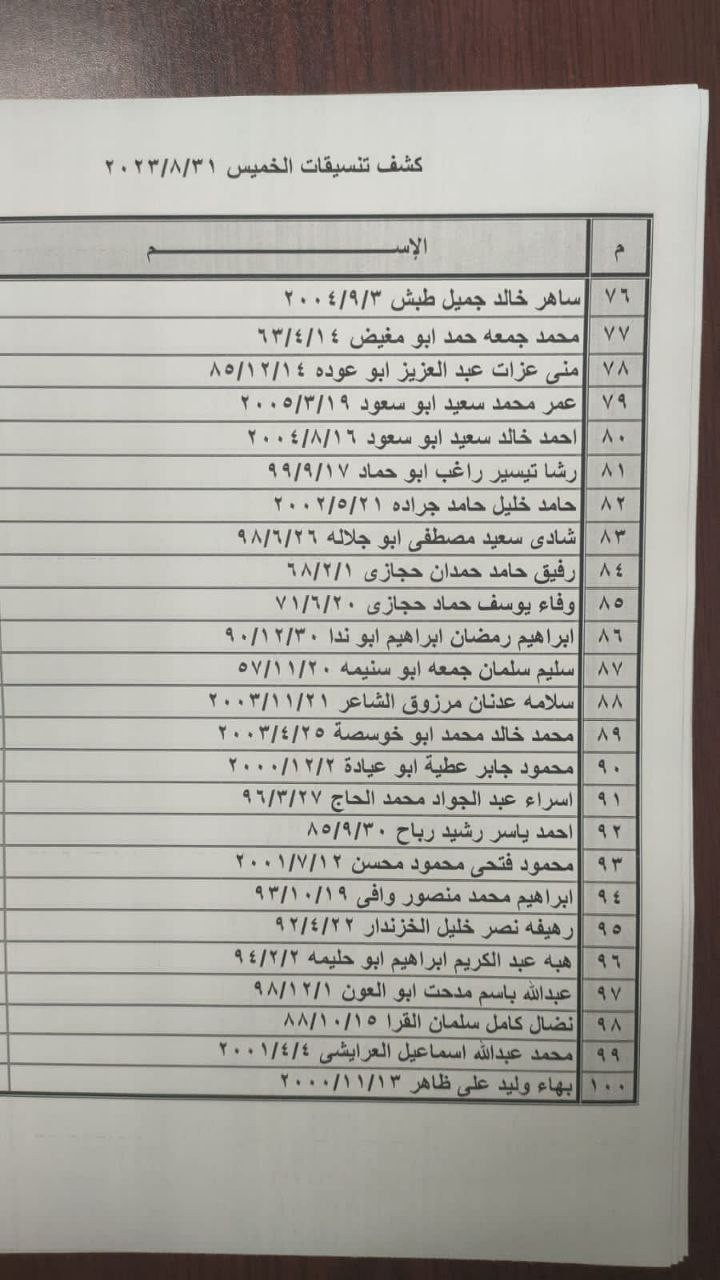 كشف تنسيقات الخميس ٢٠٢٣/٨/٣١
م الإســـــــــم
٧٦ ساهر خالد جميل طبش ٢٠٠٤/٩/٣
٧٧ محمد جمعه حمد ابو مغيض ٦٣/٤/١٤
٧٨ منى عزات عبد العزيز ابو عوده ٨٥/١٢/١٤
٧٩ عمر محمد سعيد ابو سعود ٢٠٠٥/٣/١٩
٨٠ احمد خالد سعيد ابو سعود ٢٠٠٤/٨/١٦
٨١ رشا تيسير راغب ابو حماد ٩٩/٩/١٧
٨٢ حامد خليل حامد جراده ٢٠٠٢/٥/٢١
٨٣ شادى سعيد مصطفى ابو جلاله ٩٨/٦/٢٦
٨٤ رفيق حامد حمدان حجازى ٦٨/٢/١
٨٥ وفاء يوسف حماد حجازى ٧١/٦/٢٠
٨٦ ابراهيم رمضان ابراهيم ابو ندا ٩٠/١٢/٣٠
٨٧ سليم سلمان جمعه ابو سنيمه ٥٧/١١/٢٠
٨٨ سلامه عدنان مرزوق الشاعر ٢٠٠٣/١١/٢١
٨٩ محمد خالد محمد ابو خوسصة ٢٠٠٣/٤/٢٥
٩٠ محمود جابر عطية ابو عيادة ٢٠٠٠/١٢/٢
٩١ اسراء عبد الجواد محمد الحاج ٩٦/٣/٢٧
٩٢ احمد ياسر رشيد رباح ٨٥/٩/٣٠
٩٣ محمود فتحى محمود محسن ٢٠٠١/٧/١٢
٩٤ ابراهيم محمد منصور وافى ٩٣/١٠/١٩
٩٥ رهيفه نصر خليل الخزندار ٩٢/٤/٢٢
٩٦ هبه عبد الكريم ابراهيم ابو حليمه ٩٤/٢/٢
٩٧ عبدالله باسم مدحت ابو العون ٩٨/١٢/١
٩٨ نضال كامل سلمان القرا ٨٨/١٠/١٥
٩٩ محمد عبدالله اسماعيل العرايشى ٢٠٠١/٤/٤
١٠٠ بهاء وليد على ظاهر ٢٠٠٠/١١/١٣